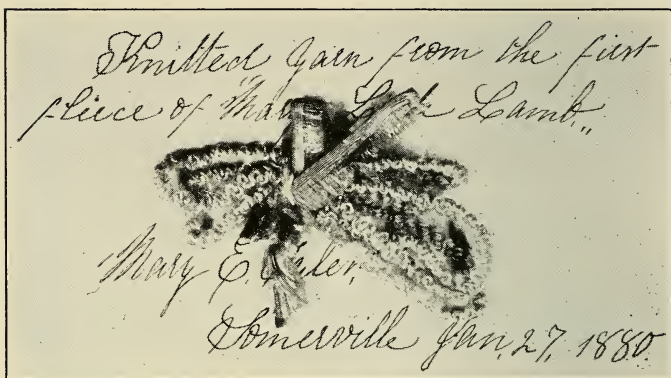 Knitted yarn from the first
fleece of "Mary's Little Lamb„
Mary E. Tyler
Somerville Jan. 27, 1880.